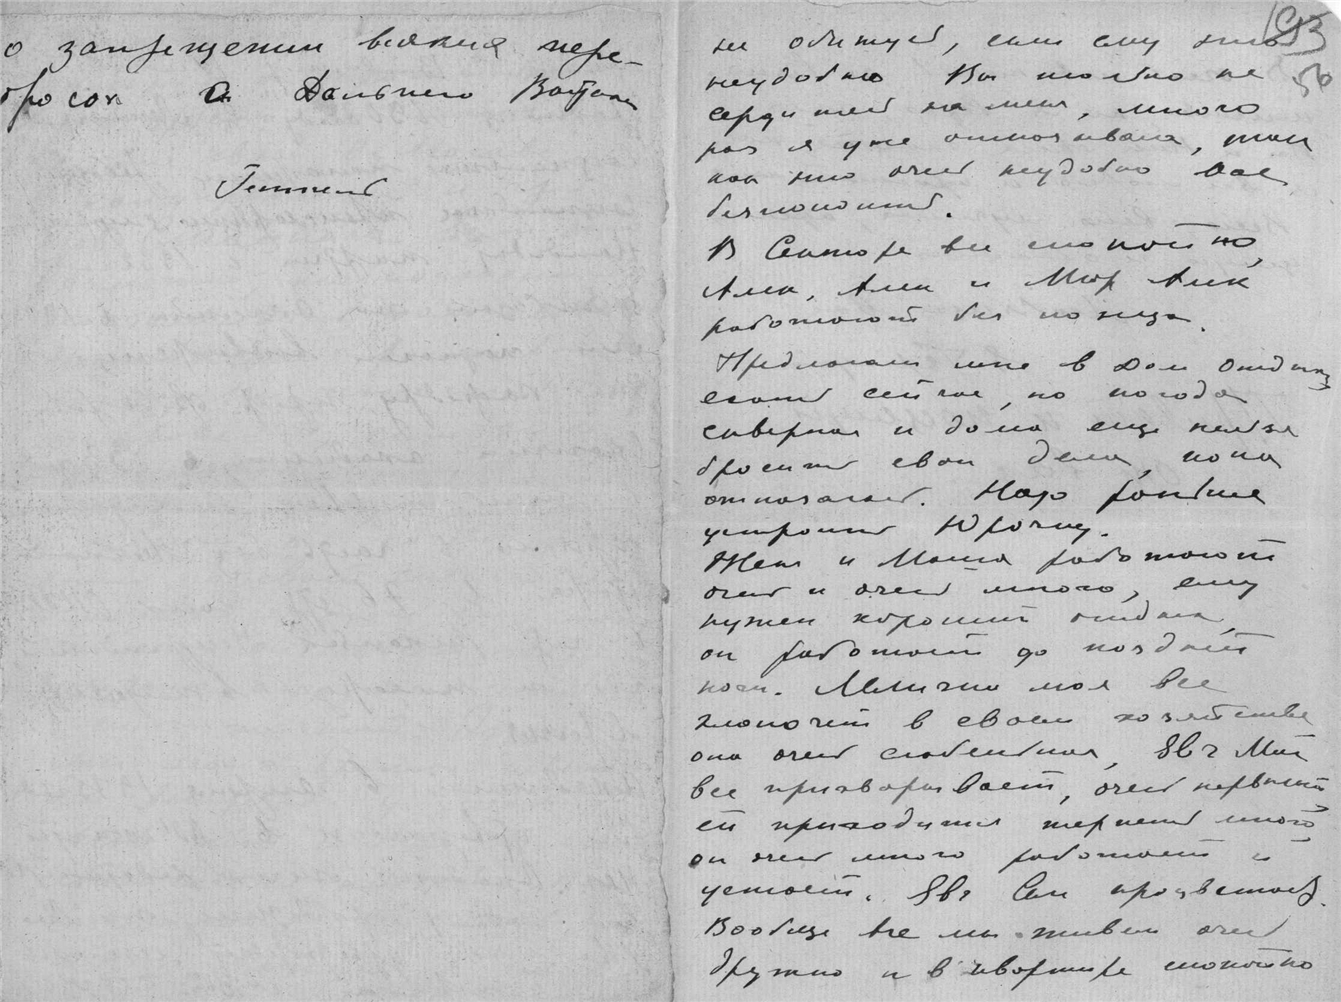 о запрещении всяких пере-
бросок с Дальнего Востока
193
50
не обижует, если ему это
неудобно Вы только не
сердитесь на меня, много
раз я уже отказывала, так
как это очень неудобно Вас
беспокоить.
В Секторе все спокойно,
Алек, Алек и Мюр Алик
работают без конца.
Предлагают мне в Дом Отдыха
ехать сейчас, но погода
скверная и дома еще нельзя
бросить свои дела, пока
отказалась. Надо раньше
устроить Юрочку.
Женя и Маша работают
очень и очень много, ему
нужен хороший отдых,
он работает до поздней
ночи. Мамочка моя все
хлопочет в своем хозяйстве
она очень слабенькая,
все прихварывает, очень нервный
ей приходится терпеть много
он очень много работает и
устает. процветает.
Вообще все мы живем очень
дружно и в квартире спокойно